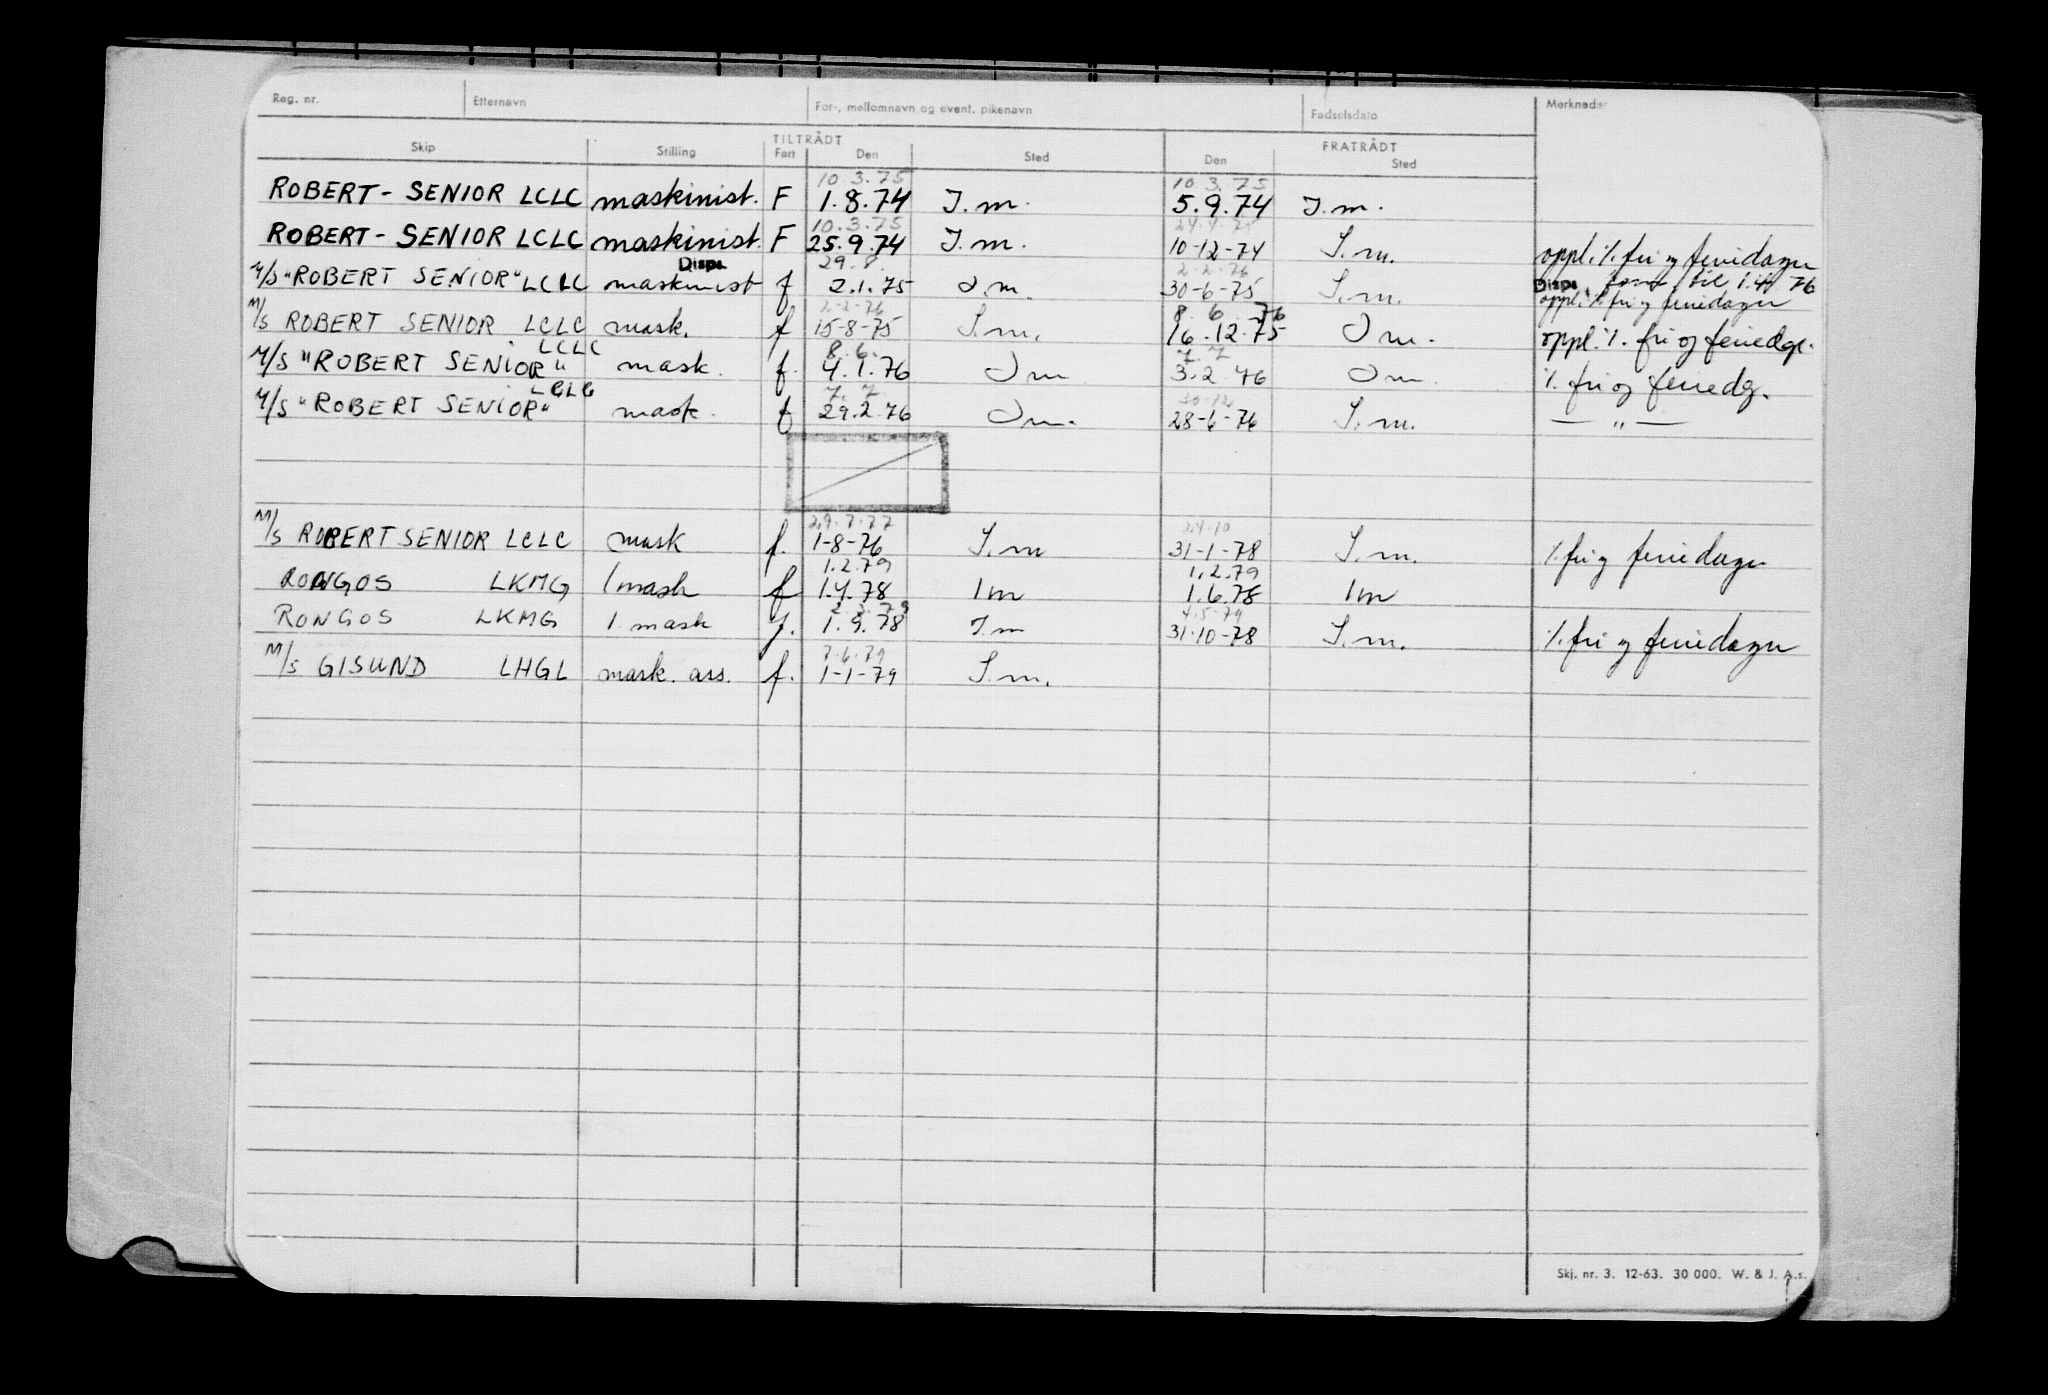 Reg. nr. Etternavn For-, mellomnavn og event. pikenavn Fødselsdato Merknader
TILTRÅDT FRATRÅDT
Skip Stilling Fart Den Sted Den Sted
10.3.75 10.3.75
ROBERT - SENIOR LCLC maskinist. F 1.8.74 I.m. 5.9.74 I.m.
10.3.75 24.4.75
ROBERT - SENIOR LCLC maskinist. F 25.9.74 I.m. 10-12-74 I.m. oppl. ⁒ fri og feriedager
Disp. 29.8. 2-2-76 Disp. til 1.4 76
M/S "ROBERT SENIOR" LCLC maskinist f 2.1.75 I.m. 30-6-75 I.m. oppl. ⁒ fri og feriedager
2-2-76 8. 6. 76
M/S ROBERT SENIOR LCLC mask. f 15-8-75 I.m. 16.12.75 I m. oppl. ⁒ fri og feriedgr.
LCLC 8.6. 7.7
M/S "ROBERT SENIOR" mask. f. 4.1.76 I m 3.2.76 I m. ⁒ fri og feriedg.
LCLC 7.7 30-12
M/S "ROBERT SENIOR" mask. f 29.2.76 I m. 28-6-76 I.m. — " —
29.7.77 24.10
M/S ROBERT SENIOR LCLC mask f. 1-8-76 I.m 31-1-78 I.m. ⁒ fri og feriedager
1.2.79 1.2.79
RONGOS LKMG 1 mask f 1.4.78 I m 1.6.78 I m
2.3.79 4.5-79
RONGOS LKMG 1. mask f. 1.9.78 I.m 31-10-78 I.m. ⁒ fri og feriedager
7.6.79
M/S GISUND LHGL mask. ass. f. 1-1-79 I.m.
Skj. nr. 3. 12-63. 30 000. W. & J. A.s.